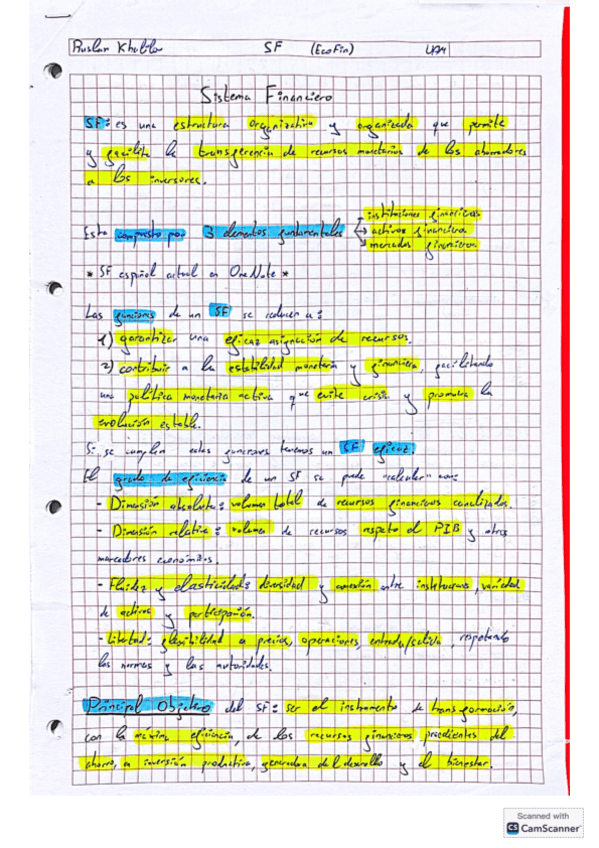 Ruslan SF (EcoFin) UAM
Sistema Financiero
SF: es una estructura organizativa y organizada que permite
y facilita la transferencia de recursos monetarios de los ahorradores
a los inversores.
instituciones financieras
Esta compuesto por 3 elementos fundamentales → activos financieros
mercados financieros
* SF español actual en OneNote *
Las funciones de un SF se reducen a:
1) garantizar una eficaz asignación de recursos.
2) contribuir a la estabilidad monetaria y financiera, facilitando
una política monetaria activa que evite crisis y promueva la
evolución estable.
Si se cumplen estas funciones tenemos un SF eficaz.
El grado de eficiencia de un SF se puede "calcular" con:
- Dimensión absoluta: volumen total de recursos financieros canalizados.
- Dimensión relativa: volumen de recursos respecto al PIB y otros
marcadores económicos.
- Fluidez y elasticidad: diversidad y conexión entre instituciones, variedad
de activos y participación.
- Libertad: flexibilidad a precios, operaciones, entrada/salida, respetando
las normas y las autoridades.
Principal Objetivo del SF: ser el instrumento de transformación,
con la máxima eficiencia, de los recursos financieros procedientes del
ahorro, a inversión productiva, generadora del desarollo y el bienestar.
Scanned with
CS CamScanner